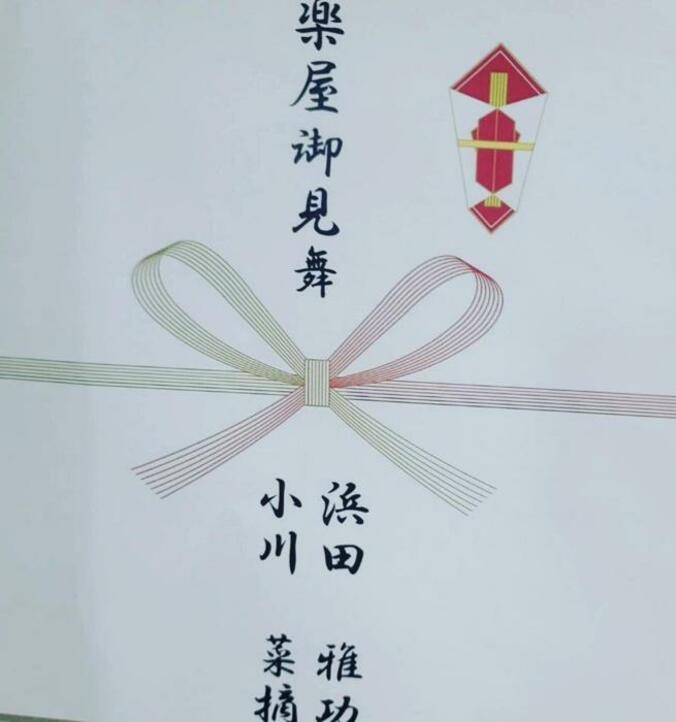 楽屋御見舞
浜田 雅功
小川 菜摘